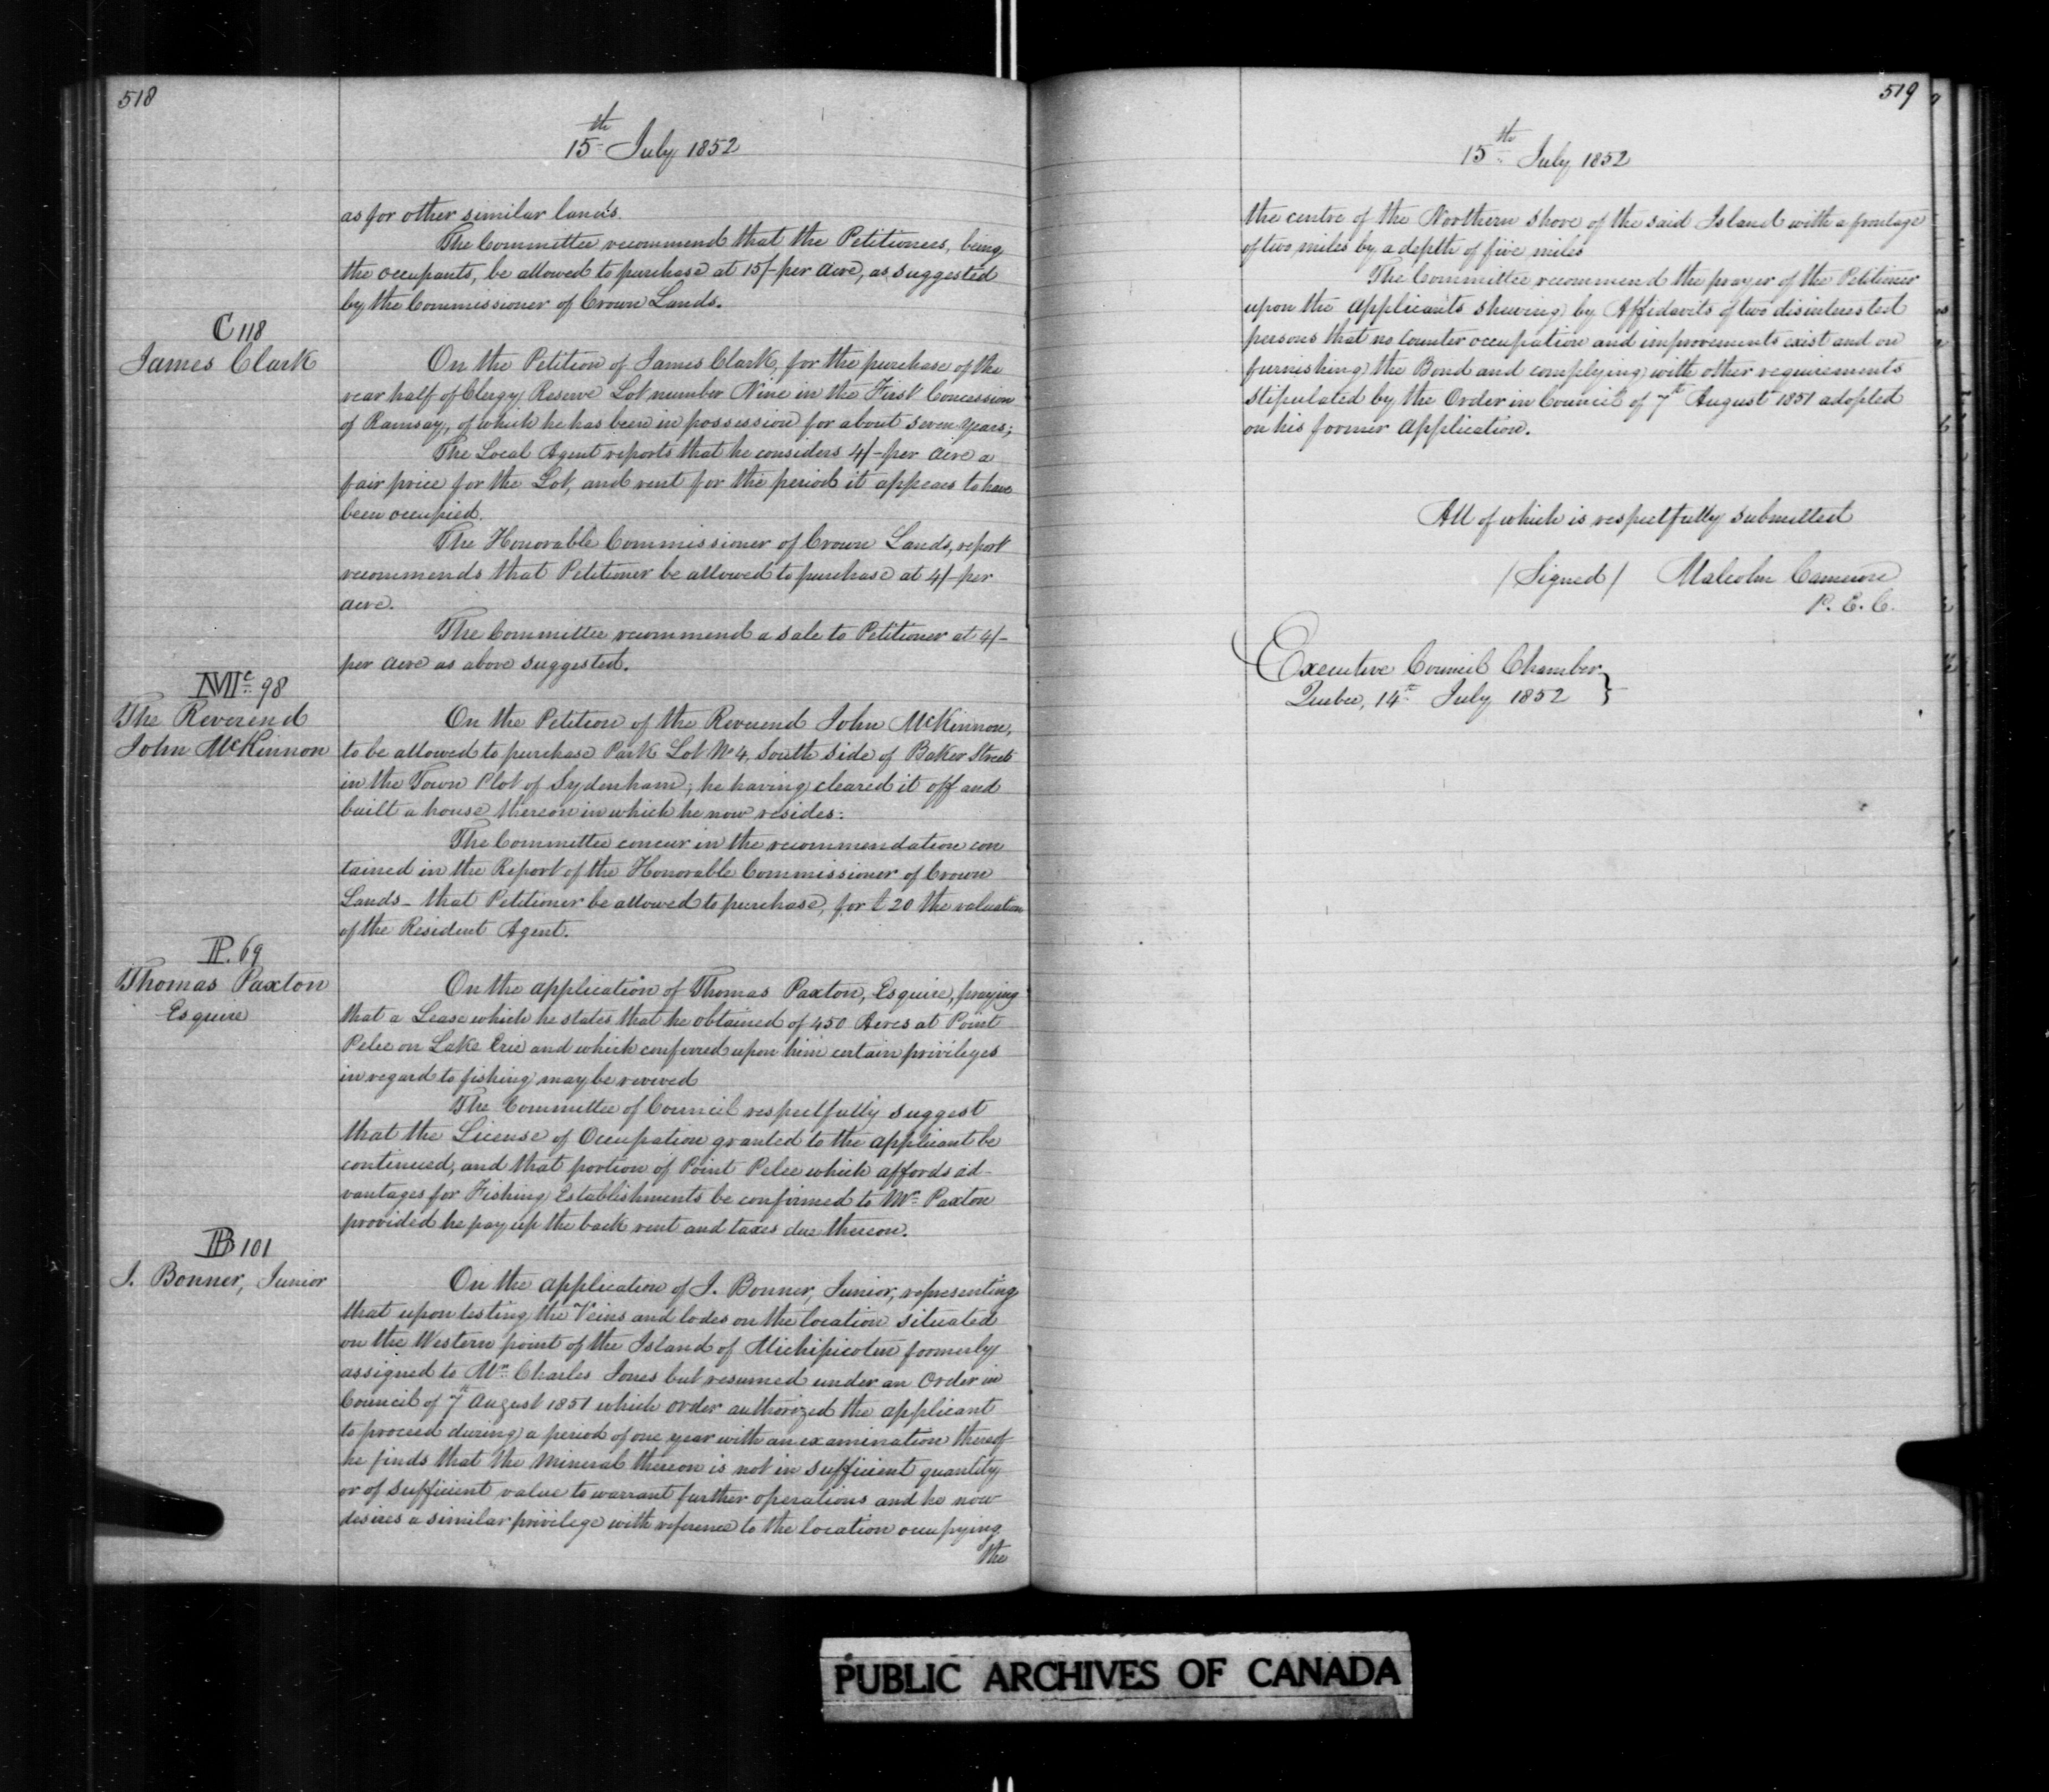 518
15th July 1852
as for other similar lands.
The Committee recommend that the Petitioners, being
the occupants, be allowed to purchase at 15/- per acre, as suggested
by the Commissioner of Crown Lands.
C 118
James Clark
On the Petition of James Clark, for the purchase of the
rear half of Clergy Reserve Lot number Nine in the First Concession
of Ramsay, of which he has been in possession for about seven years;
The Local Agent reports that he considers 4/- per acre a
fair price for the Lot, and rent for the period it appears to have
been occupied.
The Honorable Commissioner of Crown Lands, report
recommends that Petitioner be allowed to purchase at 4/- per
acre.
The Committee recommend a sale to Petitioner at 4/-
per acre as above suggested.
Mc 98
The Reverend
John McKinnon
On the Petition of the Reverend John McKinnon,
to be allowed to purchase Park Lot No 4, South side of Baker Street
in the Town Plot of Sydenham; he having cleared it off and
built a house thereon in which he now resides:
The Committee concur in the recommendation con
tained in the Report of the Honorable Commissioner of Crown
Lands - that Petitioner be allowed to purchase, for £20 the valuation
of the Resident Agent.
P. 69
Thomas Paxton
Esquire
On the application of Thomas Paxton, Esquire, praying
that a Lease which he states that he obtained of 450 Acres at Point
Pelee on Lake Erie and which conferred upon him certain privileges
in regard to fishing may be revived
The Committee of Council respectfully suggest
that the License of Occupation granted to the applicant be
continued, and that portion of Point Pelee which affords ad-
vantages for Fishing Establishments be confirmed to Mr Paxton
provided he pay up the back rent and taxes due thereon.
B 101
J. Bonner, Junior
On the application of J. Bonner, Junior, representing
that upon testing the Veins and lodes on the location situated
on the Western point of the Island of Michipicoten formerly
assigned to Mr Charles Jones but resumed under an Order in
Council of 7th August 1851 which order authorized the applicant
to proceed during a period of one year with an examination thereof
he finds that the Mineral thereon is not in sufficient quantity
or of sufficient value to warrant further operations and he now
desires a similar privilege with reference to the location occupying
the
519
15th July 1852
the centre of the Northern shore of the said Island with a frontage
of two miles by a depth of five miles
The Committee recommend the prayer of the Petitioner
upon the applicants shewing by Affidavits of two disinterested
persons that no counter occupation and improvements exist and on
furnishing the Bond and complying with other requirements
stipulated by the Order in Council of 7th August 1851 adopted
on his former application.
All of which is respectfully submitted
/Signed/ Malcolm Cameron
P. E. C.
Executive Council Chamber }
Quebec, 14th July 1852
PUBLIC ARCHIVES OF CANADA